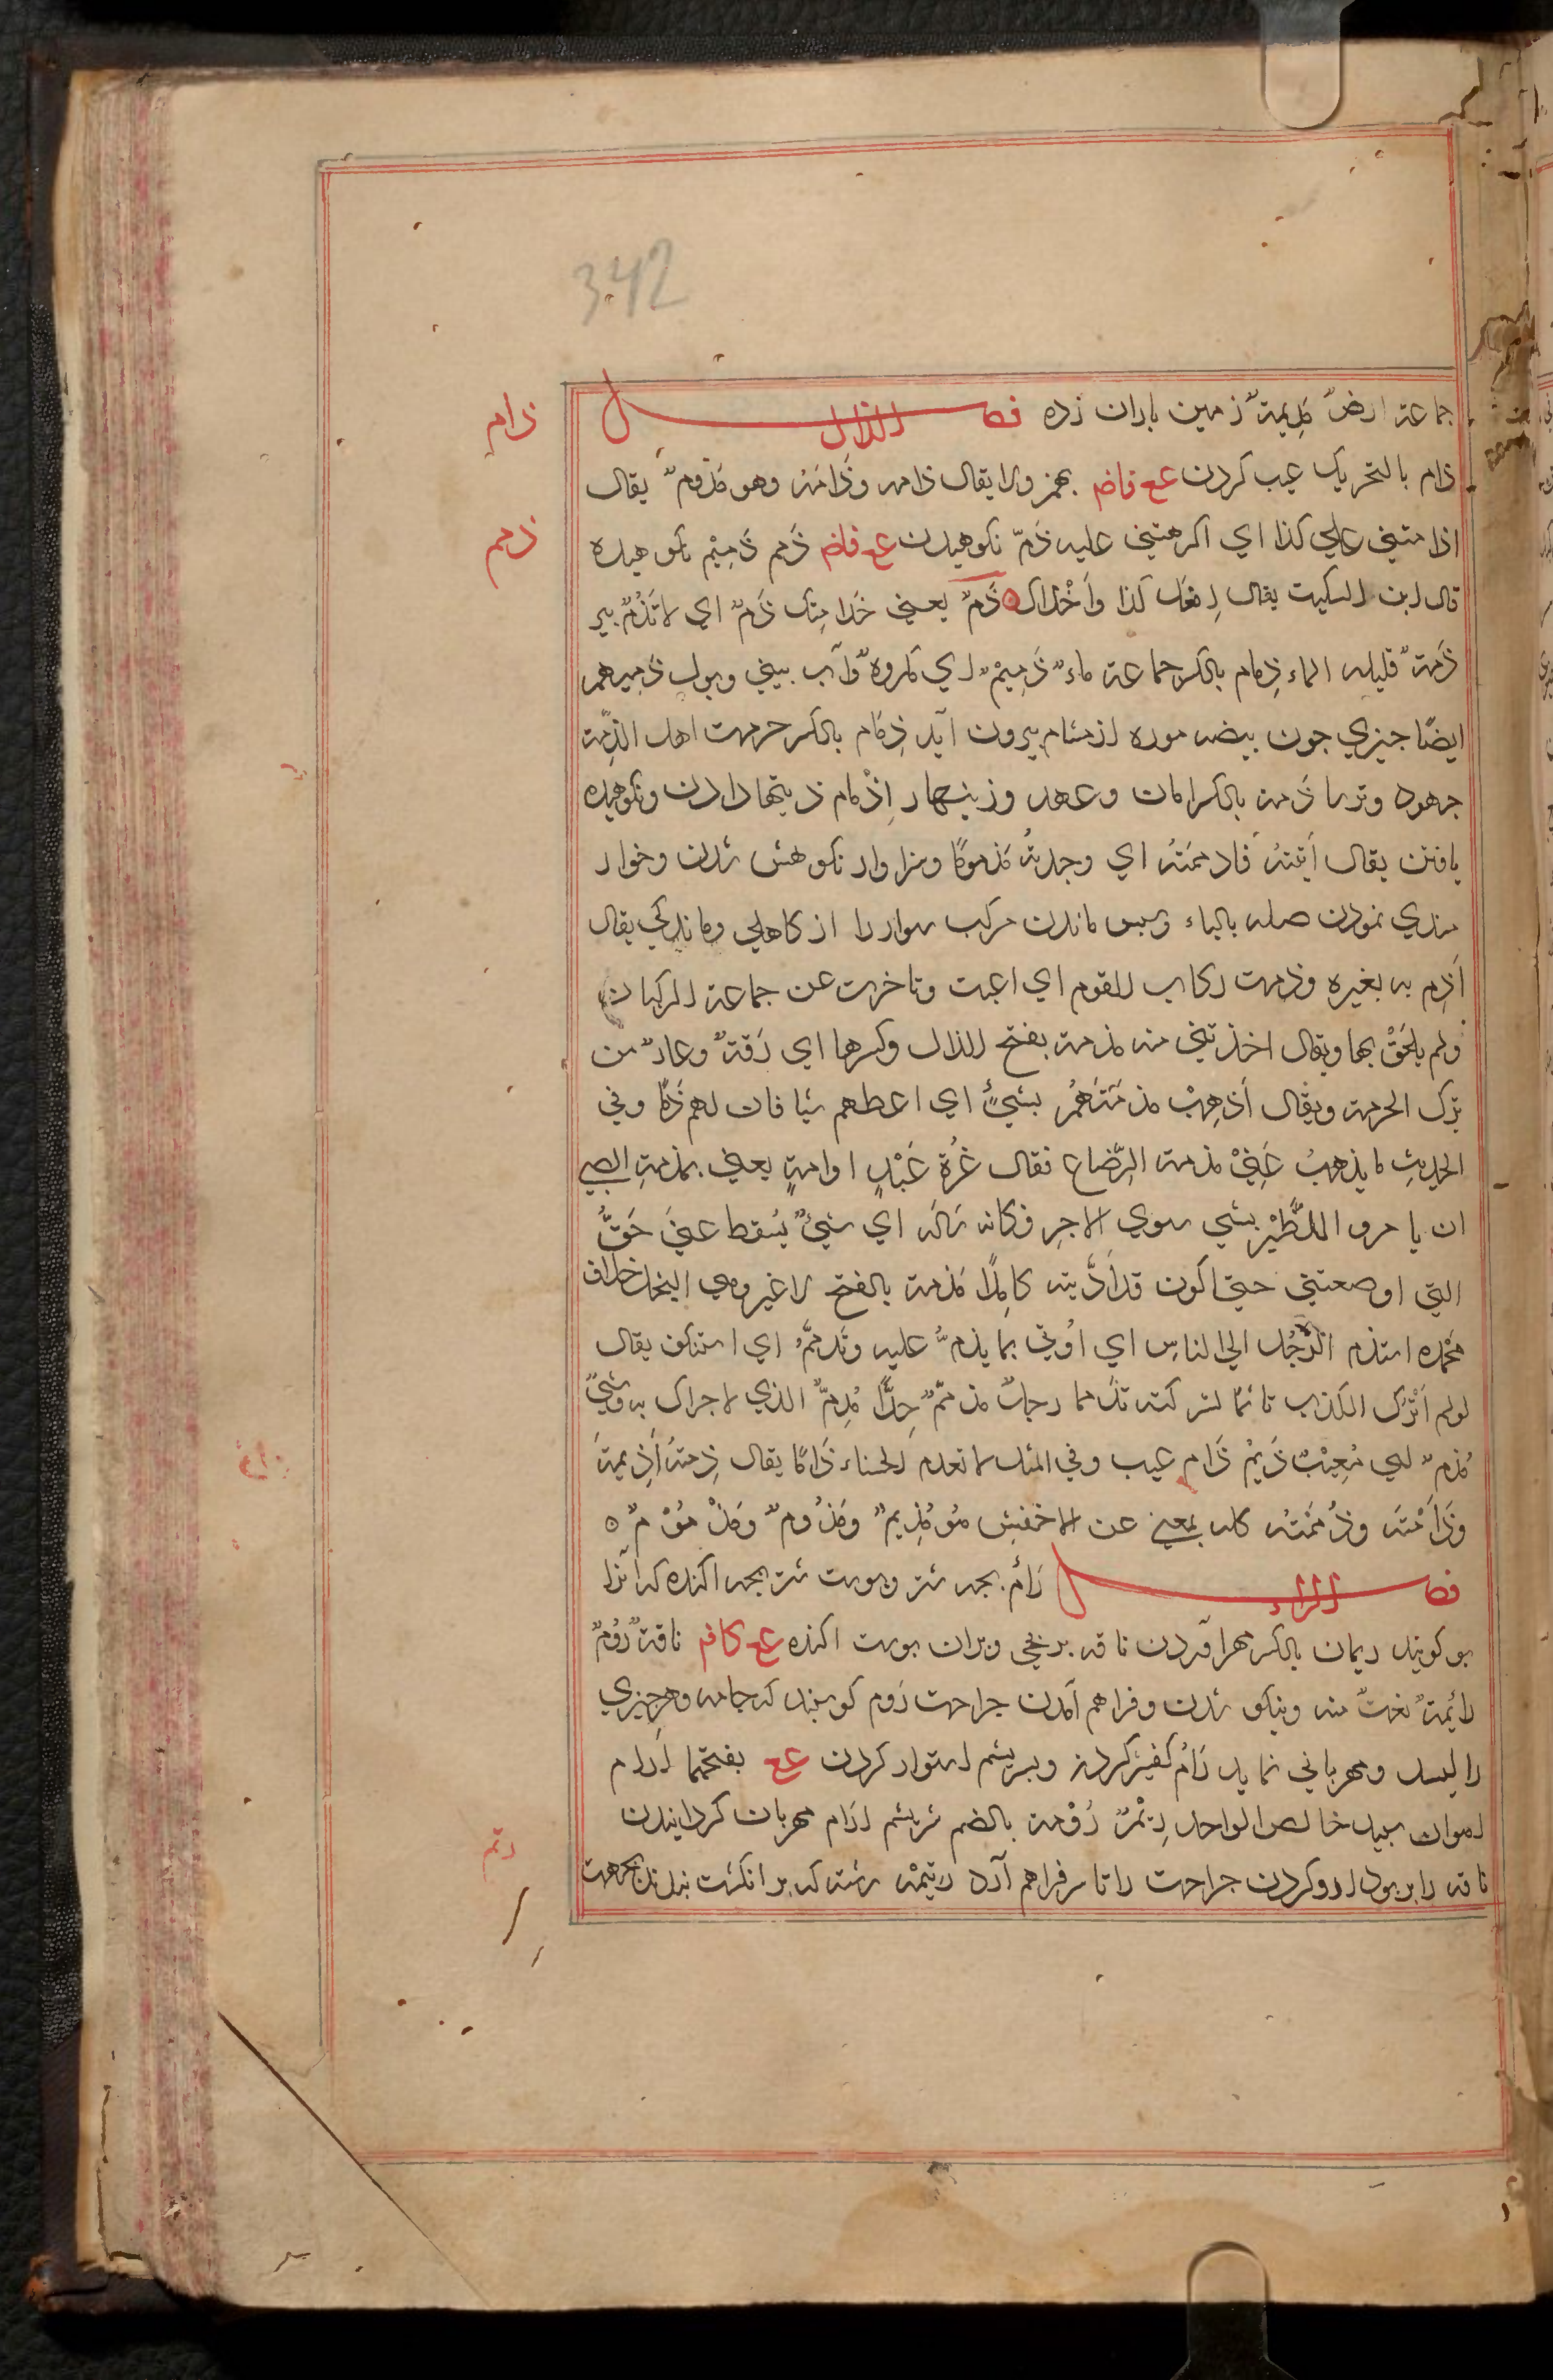 342
جماعة ارضٌ مَدِيمَةٌ زمين باران زده فصل الذال
ذام
ذام بالتحريك عيب كردن عع فاضه بهمز ولا يقال ذامه وذَامَتْه وهو مَذْومٌ يقال
اذامتني علي كذا اي اكرهتني عليه ذَمّ نكوهيدن عع فاضه ذمم ذَمِيْم نكوهيده
ذمم
قال ابن السكيت يقال اِفعَل كذا وَاَخْلَاكَ ذَمٌّ يعني خَلَا مِنْكَ ذَمٌّ اي لا تُذَمُّ بئر
ذَمّة قليله الماء ذِمام بالكسر جماعة ماء ذَمِيمٌ اي مكروه وآب بيني وبول ذميم هم
ايضًا چيزي چون بيضه موره از مشام بيرون آيد ذِمَام بالكسر حرمت اهل الذمة
جهود وترسا ذمة بالكسر امان وعهد وزينهار اِذْمام ذينها دادن ونكوهيده
يافتن يقال اَتَيْتُهُ فاذممتُه اي وجدتُه مَذمومًا وسزاوار نكوهش شدن وخوار
مندي نمودن صله بالباء وسپس ماندن مركب سوار را از كاهلي وماندكي يقال
اَذَم به بغيره وذمت ركاب القوم اي اعيت وتاخرت عن جماعة الركبان
ولم يلحَقْ بها ويقال اخذتني منه مذمة بفتح الذال وكسرها اي رَقةٌ وعارٌ من
ترك الحرمة ويقال اَذهِبْ مذمَّتَهُمْ بشيءٍ اي اعطهم شيا فان لهم ذمًّا وفي
الحديث ما يذهبُ عَنِّيْ مذمة الرَّضاع فقال غُرةُ عَبْدٍ او امةٍ يعني بمذمةِ الصبي
ان يا مروا للظِّئْرِ بشي سوي الاجر فكانه سَالَه اي شيءٌ يُسْقط عني حَقُّ
التي ارضعتني حتى اكون قد اَدَّيته كامِلًا مَذمة بالفتح لا غير وهي البخل خلاف
مَحْمَدة استذم الرَّجُل الي الناس اي اُوتي بما يذمُّ عليه وتَذمَّمُ اي استنكف يقال
لولم اَتْرُك الكذب تاثمًا لتركته تذمما رجلٌ مذممٌ جِدًّا مُذِمٌّ الذي لا حراك به وشيءٌ
مُذِمٌّ اي مُعِيْبٌ ذَيم ذَام عيب وفي المثل لا تعدم الحسناء ذَامًا يقال ذِمتُه اَذِيمَهُ
وذَاَمْتَه وذَمَمْتُه كله بمعني عن الاخفش هُو مَذِيمٌ ومَذْؤمٌ ومَذْمُوْمٌ ه
فصل الراء رَأم بچه شتر وپوست شتر بچه اكنده كه انرا
بو كويند ريمان بالكسر مهر آوردن ناقه بر بچه وبران پوست اكنده عع كافه ناقةٌ رَؤُمٌ
رائمةٌ نعت منه ونيكو شدن وفراهم آمدن جراحت رَؤم كوسپند كه جامه وهر چيزي
را ليسد ومهرباني نمايد رَام كفشيركردن وبسريشم استوار كردن عع بفتحهما ارام
اهوان سپيد خالص الواحد رِئْمٌ رُؤْمة بالضم سريشم ارَام مهربان كردانيدن
رتم
ناقه را بر بو ودارو كردن جراحت را تا سر فراهم آرد رَتِيْمَه رشته كه بر انكشت بندند بجهت